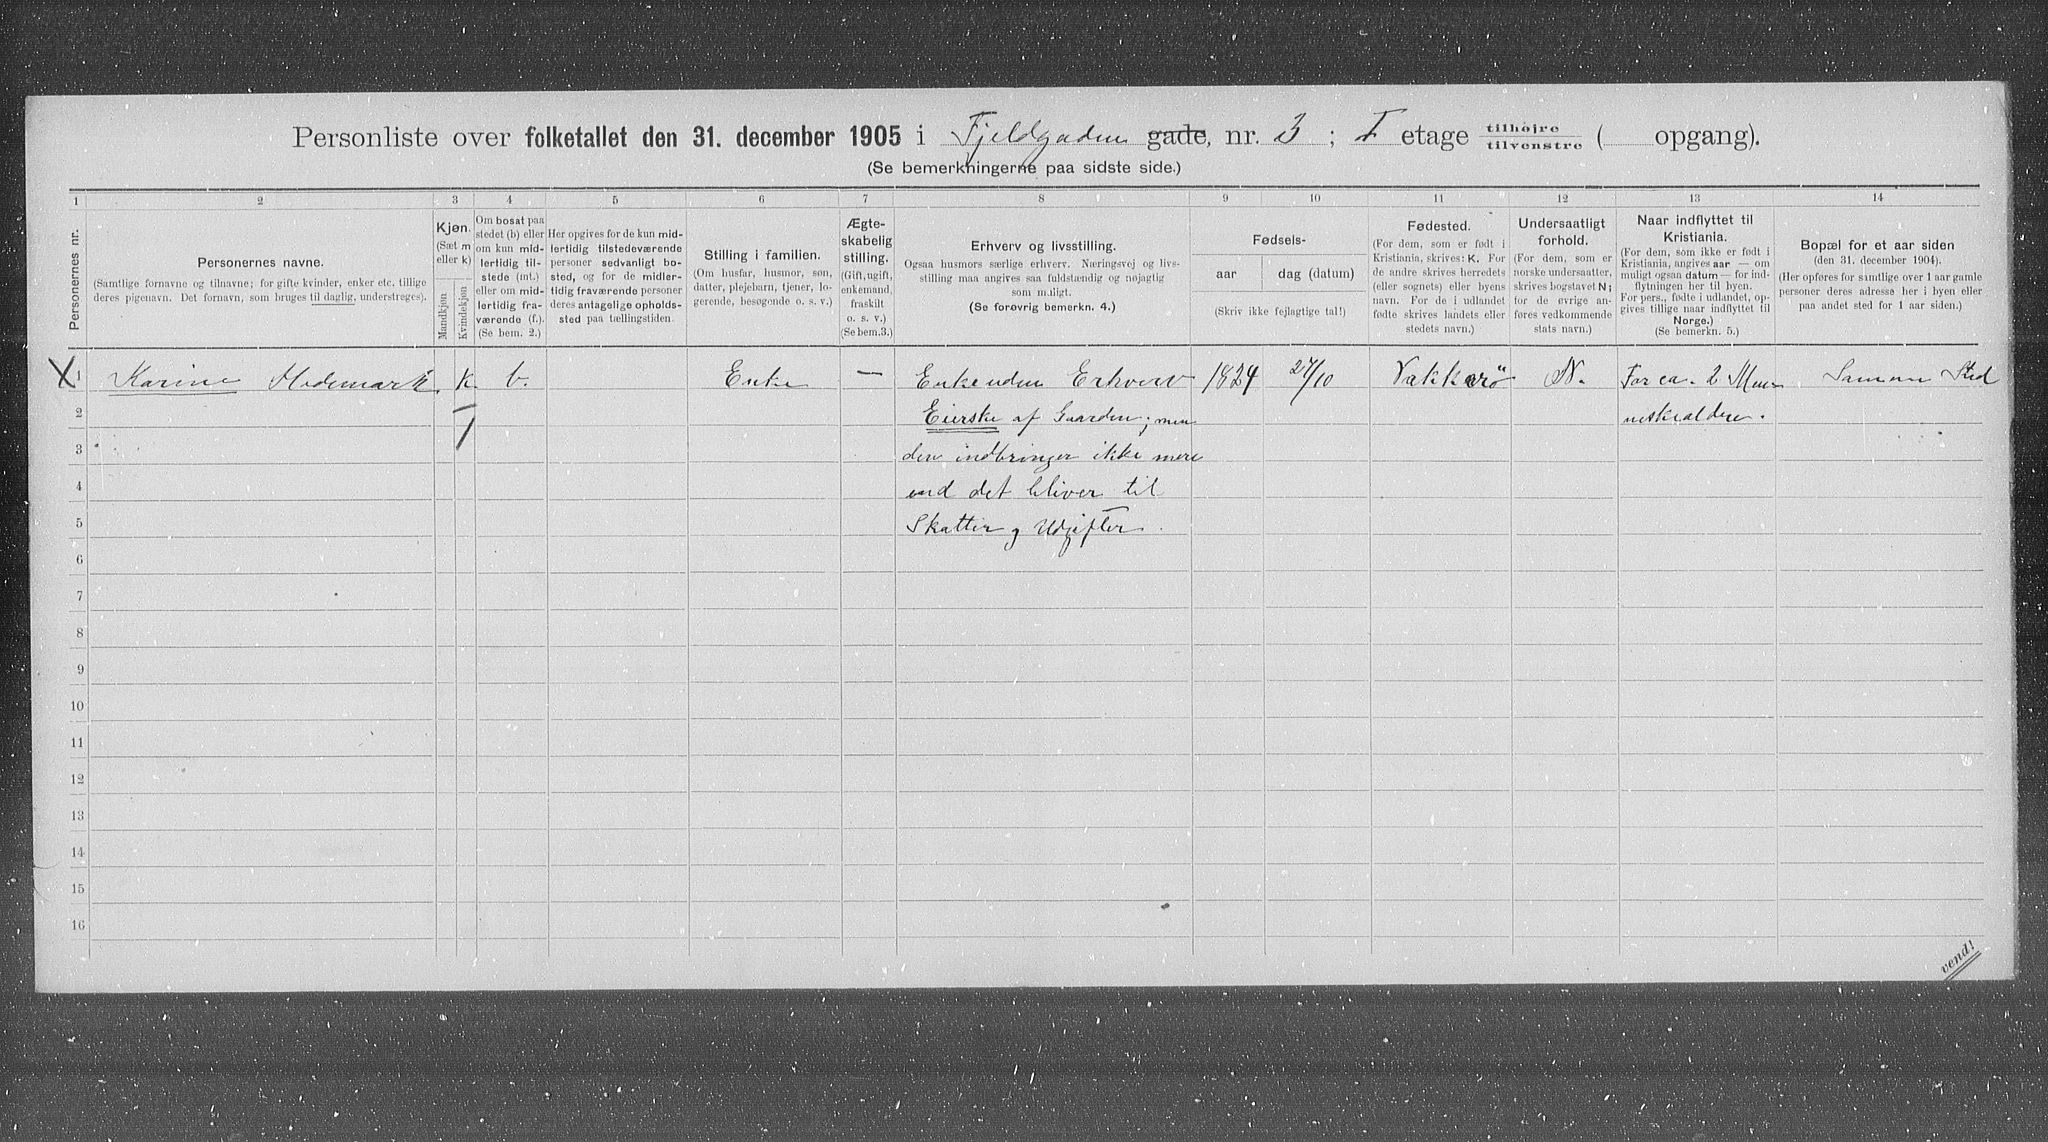 Personliste over folketallet den 31. december 1905 i Fjeldgaden gade, nr. 3; I etage tilhøjre tilvenstre ( opgang).
(Se bemerkningerne paa sidste side.)
1 2 3 4 5 6 7 8 9 10 11 12 13 14
Personernes nr.
Personernes navne.
(Samtlige fornavne og tilnavne; for gifte kvinder, enker etc. tillige
deres pigenavn. Det fornavn, som bruges til daglig, understreges).
Kjøn.
(Sæt m
eller k)
Mandkjøn
Kvindekjøn
Om bosat paa
stedet (b) eller
om kun mid-
lertidig til-
stede (mt.)
eller om mid-
lertidig fra-
værende (f.).
(Se bem. 2.)
Her opgives for de kun mid-
lertidig tilstedeværende
personer sedvanligt bo-
sted, og for de midler-
tidig fraværende personer
deres antagelige opholds-
sted paa tællingstiden.
Stilling i familien.
(Om husfar, husmor, søn,
datter, plejebarn, tjener, lo-
gerende, besøgende o. s. v.)
Ægte-
skabelig
stilling.
(Gift, ugift,
enkemand,
fraskilt
o. s. v.)
(Se bem.3.)
Erhverv og livsstilling.
Ogsaa husmors særlige erhverv. Næringsvej og livs-
stilling maa angives saa fuldstændig og nøjagtig
som muligt.
(Se forøvrig bemerkn. 4.)
Fødsels-
aar
dag (datum)
(Skriv ikke fejlagtige tal!)
Fødested.
(For dem, som er født i
Kristiania, skrives: K. For
de andre skrives herredets
(eller sognets) eller byens
navn. For de i udlandet
fødte skrives landets eller
stedets navn.)
Undersaatligt
forhold.
(For dem, som er
norske undersaatter,
skrives bogstavet N;
for de øvrige an-
føres vedkommende
stats navn.)
Naar indflyttet til
Kristiania.
(For dem, som ikke er født i
Kristiania, angives aar — om
muligt ogsaa datum — for ind-
flytningen her til byen.
For pers., fødte i udlandet, op-
gives tillige naar indflyttet til
Norge.)
(Se bemerkn. 5.)
Bopæl for et aar siden
(den 31. december 1904).
(Her opføres for samtlige over 1 aar gamle
personer deres adresse her i byen eller
paa andet sted for 1 aar siden.)
X 1 Karine Hedemark k. b. Enke — Enke uden Erhverv 1824 27/10 Vækkerø N. For ca. 2 Men Samme Sted
2 Eierske af Gaarden; men neskealdere.
3 den indbringer ikke mere
4 end det bliver til
5 Skatter og Udgifter.
6
7
8
9
10
11
12
13
14
15
16
vend!